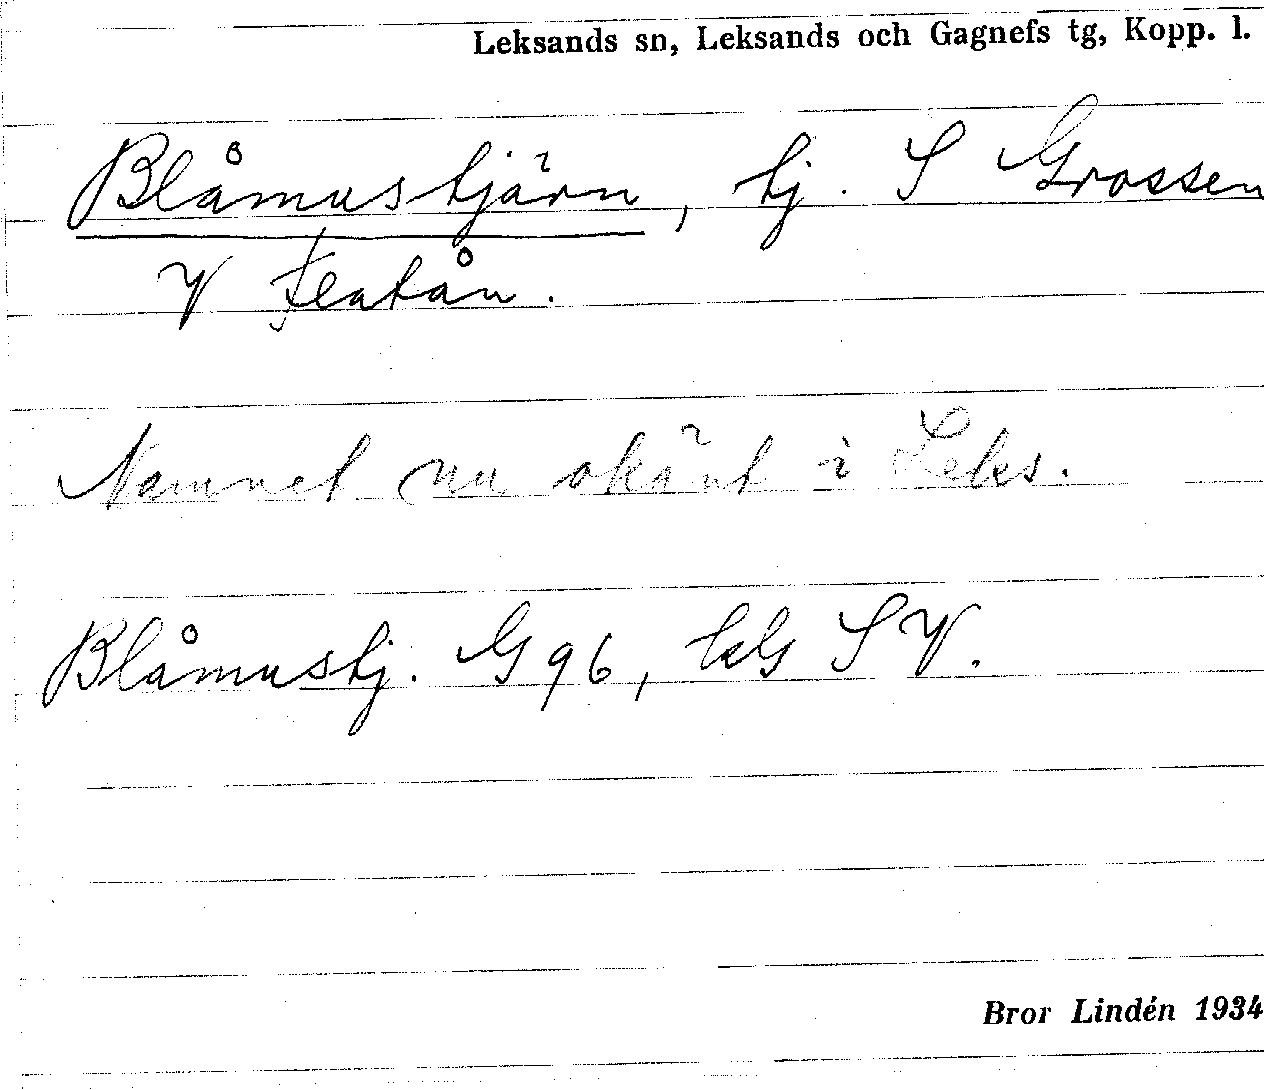 Leksands sn, Leksands och Gagnefs tg, Kopp. l.
Blåmustjärn, tj. S Grossen
V Flatån.
Namnet nu okänt i Leks.
Blåmustj. G 96, bl SV.
Bror Lindén 1934